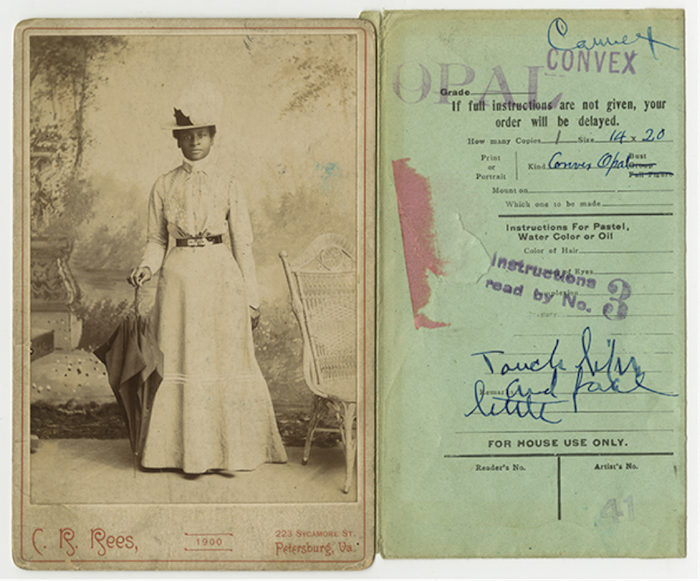 C. R. Rees,
1900
223 SYCAMORE ST.
Petersburg, Va.
Convex
CONVEX
OPAL
Grade
If full instructions are not given, your
order will be delayed.
How many Copies 1 Size 14 x 20
Print
or
Portrait
Kind Convex Opal
Bust
Group
Full Figure
Mount on
Which one to be made
Instructions For Pastel,
Water Color or Oil
Color of Hair
Eyes
Instructions
read by No. 3
Touch
and face
little
FOR HOUSE USE ONLY.
Reader's No. Artist's No.
41